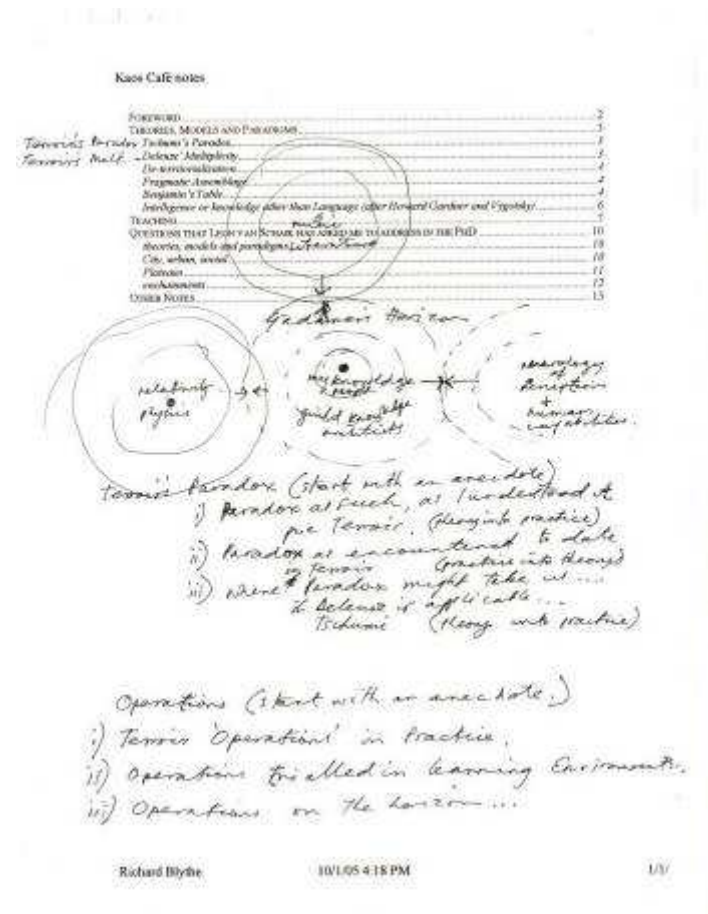 Kaos Café notes
FOREWORD 2
THEORIES, MODELS AND PARADIGMS 3
Terroir's Paradox Tschumi's Paradox 3
Terroir's Mult. - Deleuze' Multiplicity 3
De-territorialisation 4
Pragmatic Assemblage
Benjamin's Table 4
Intelligence or knowledge other than Language (after Howard Gardner and Vygotsky) 6
TEACHING 7
music
QUESTIONS THAT LEON VAN SCHAIK HAS ASKED ME TO ADDRESS IN THE PHD 10
theories, models and paradigms literature 10
City, urban, social 10
Plateaus 11
enchainments 12
OTHER NOTES 13
Gadamer's Horizon
relativity
physics
my knowledge
guild knowledge
architects
neurology
of
perception
+
human
capabilities.
Terroir's Paradox (start with an anecdote)
i) Paradox as such, as I understand it
pre Terroir. (theory into practice)
ii) Paradox as encountered to date
in Terroir (practice into theory)
iii) where Paradox might take us ....
if Deleuze is applicable...
Tschumi (theory into practice)
Operations (start with an anecdote.)
i) Terroir 'Operations' in Practice.
ii) Operations trialled in learning Environments.
iii) Operations on the horizon ...
Richard Blythe 10/1/05 4:18 PM 1/1/